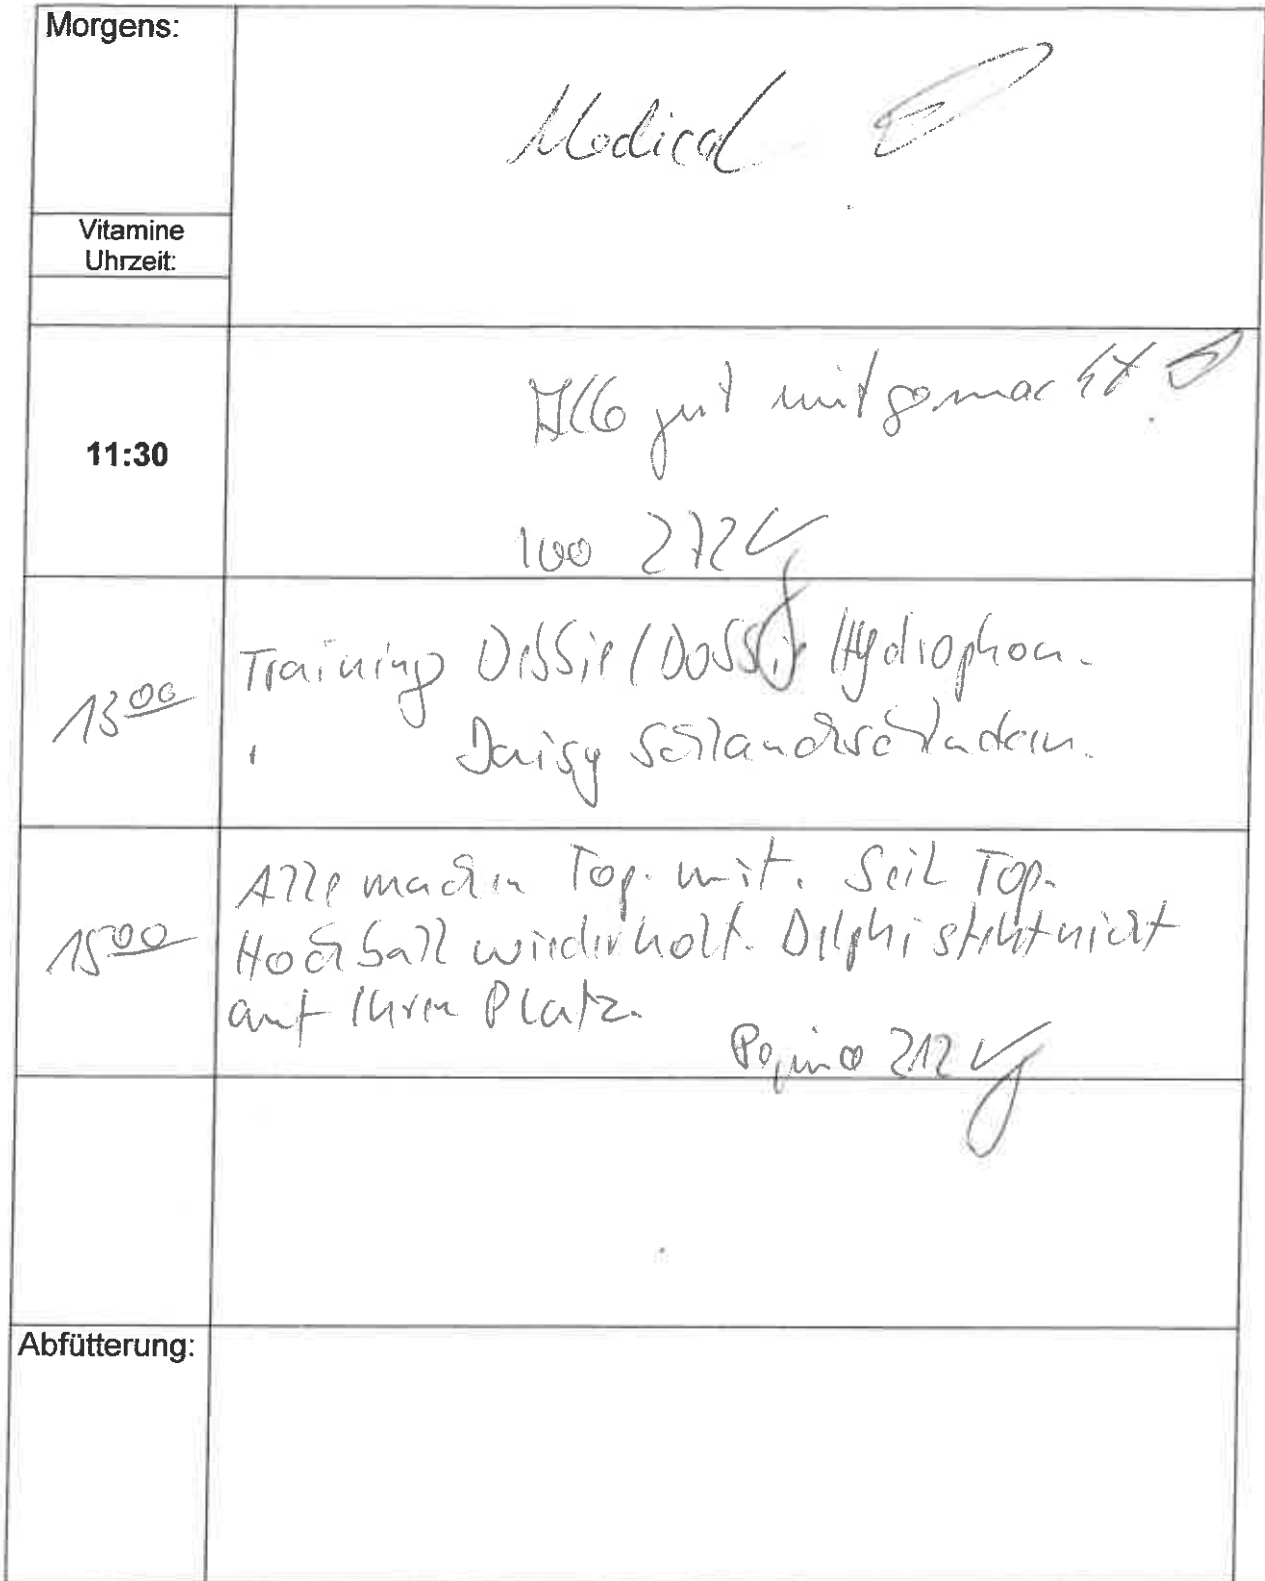 Morgens:
Medical
Vitamine
Uhrzeit:
11:30
gut mitgemacht
272 kg
13 00
Training Debbie / Dobbie Hydrophon.
Daisy Schlauchschlucken.
15 00
Alle machen Top. mit. Seil Top.
Hochball wiederholt. Delphi steht nicht
auf Ihren Platz.
212 kg
Abfütterung: